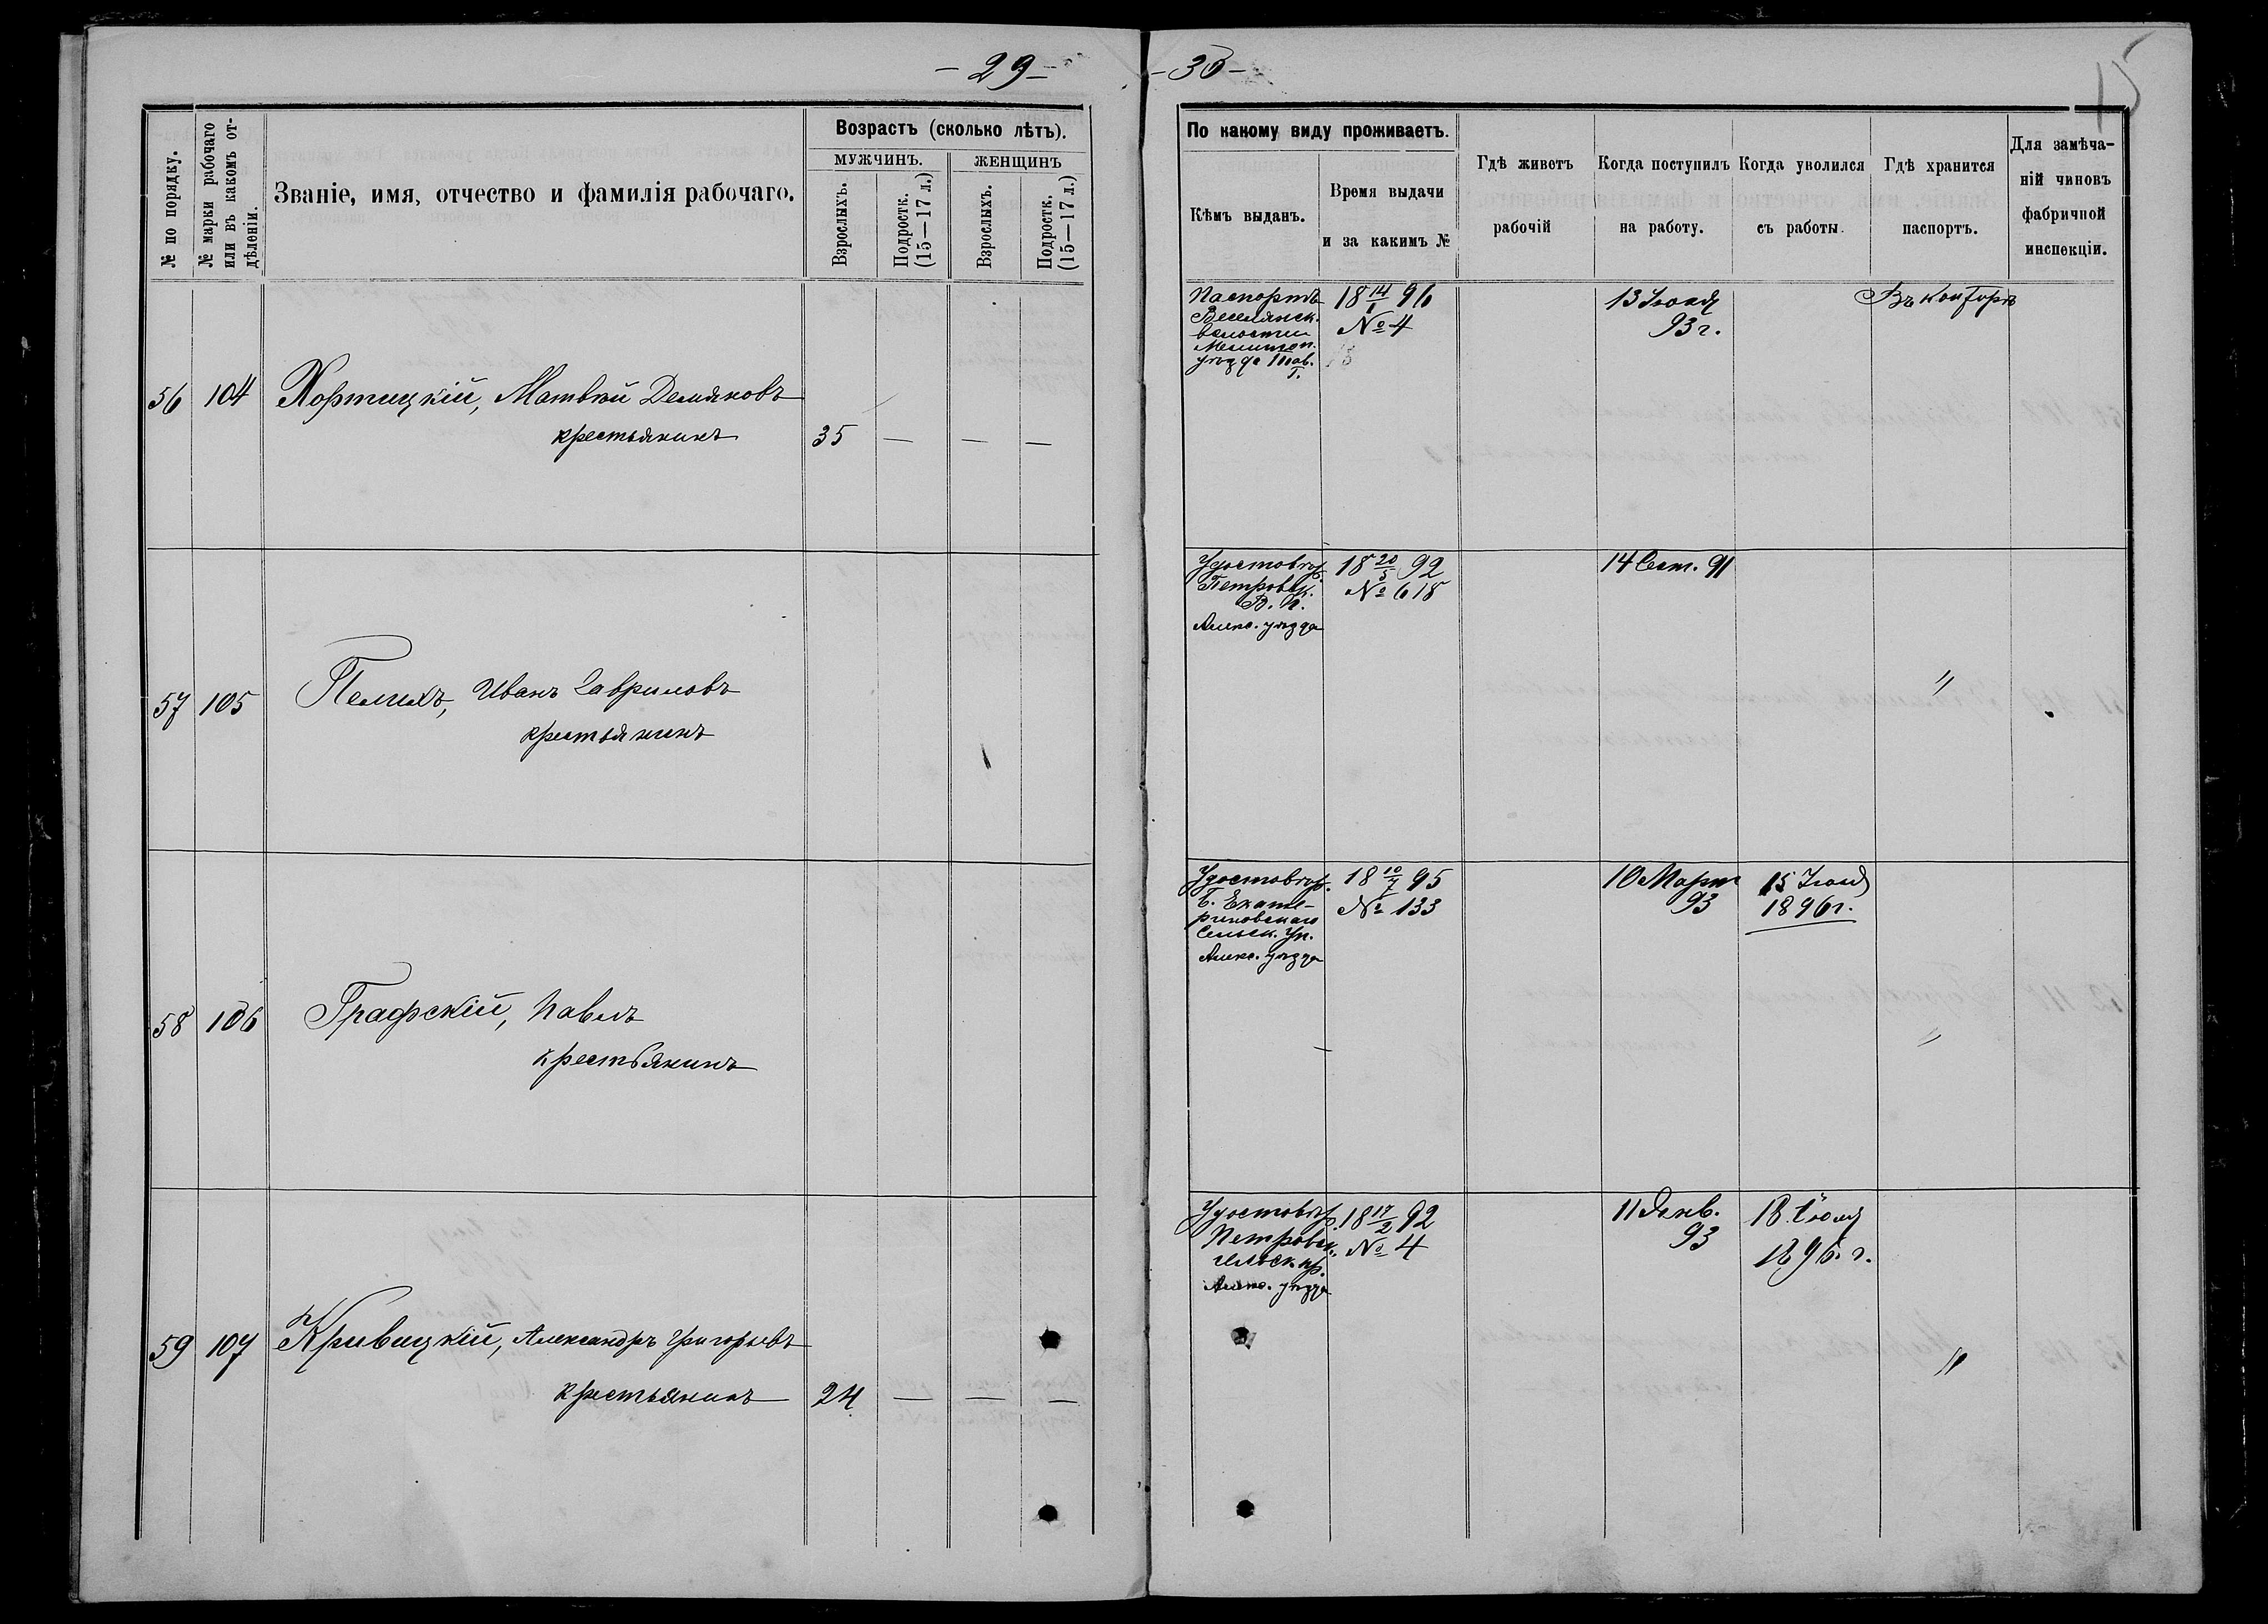 - 29 -
№ по порядку.
№ марки рабочаго или въ какомъ отдѣленіи.
Званіе, имя, отчество и фамилія рабочаго.
Возрастъ (сколько лѣтъ).
МУЖЧИНЪ.
ЖЕНЩИНЪ
Взрослыхъ.
Подростк. (15—17 л.)
Взрослыхъ.
Подростк. (15—17 л.)
56 104 Хортицкій, Матвѣй Демяновъ
крестьянинъ 35 — — —
57 105 Пелихъ, Иванъ Гавриловъ
крестьянинъ
58 106 Графскій, Павелъ
крестьянинъ
59 107 Кривицкій, Александръ Григорьевъ
крестьянинъ 24 — — —
- 30 -
15
По какому виду проживаетъ.
Кѣмъ выданъ.
Время выдачи
и за какимъ №
Гдѣ живетъ
рабочій
Когда поступилъ
на работу.
Когда уволился
съ работы.
Гдѣ хранится
паспортъ.
Для замѣча-
ній чиновъ
фабричной
инспекціи.
Паспортъ 18 14/1 96 13 Іюня Въ конторѣ
Веселянск. № 4 93 г.
волости
Мелитоп.
уѣзда Тав.
Г.
Удостовѣр. 18 20/3 92 14 Сент. 91
Петровск. № 618
В. П.
Алекс. уѣзда
"
Удостовѣр. 18 10/7 95 10 Март 15
Б. Екате- № 133 93 1896 г.
риновскаго
Сельск. Уп.
Алекс. уѣзда
"
Удостовѣр. 18 17/2 92 11 Янв. 18
Петровск. № 4 93 1896 г.
сельск. пр.
Алекс. уѣзда
"